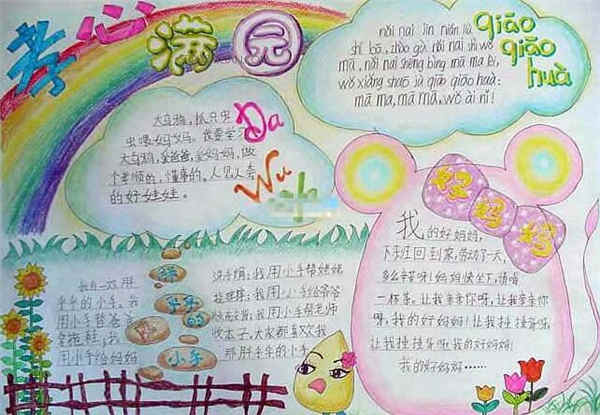 孝心满园
nǎi nai jīn nián liù
shí bā, zhào gù nǎi nai shì wǒ
mā, nǎi nai shēng bìng mā ma lèi,
wǒ xiǎng shuō jù qiāo qiāo huà:
mā ma, mā mā, wǒ ài nǐ!
qiāo
qiāo
huà
大乌鸦,抓只虫
虫喂妈妈。我要学
大乌鸦,爱爸爸,爱妈妈,做
个孝顺的、懂事的、人见人夸
的好娃娃。
Da
Wu
好妈妈
我的好妈妈,
下班回到家,劳动了一天,
多么辛苦呀!妈妈快坐下,请喝
一杯茶,让我亲亲你呀,让我亲亲你
呀,我的好妈妈!我的好妈妈!
我的好妈妈……
我有一双
小手的小手。我
用小手替爸爸
拿拖鞋;我
用小手给妈妈
小手
洗手绢;我用小手帮姥姥
我用小手给爷爷
我用小手帮老师
收本子,大家都喜欢我